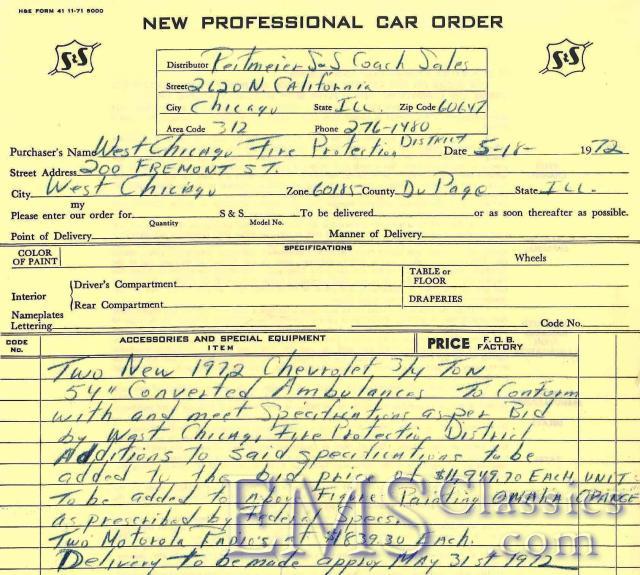 H&E FORM 41 11-71 5000
NEW PROFESSIONAL CAR ORDER
S&S
S&S
Distributor Peitmeier S&S Coach Sales
Street 2620 N. California
City Chicago State Ill. Zip Code 60647
Area Code 312 Phone 276-1480
Purchaser's Name West Chicago Fire Protection District Date 5-18- 1972
Street Address 200 FREMONT ST.
City West Chicago Zone 60185 County Du Page State Ill.
my
Please enter our order for S & S To be delivered or as soon thereafter as possible.
Quantity Model No.
Point of Delivery Manner of Delivery
SPECIFICATIONS
COLOR OF PAINT Wheels
Interior Driver's Compartment TABLE or FLOOR
Rear Compartment DRAPERIES
Nameplates
Lettering Code No.
CODE No. ACCESSORIES AND SPECIAL EQUIPMENT ITEM PRICE F.O.B. FACTORY
Two New 1972 Chevrolet 3/4 Ton
54" Converted Ambulances To Conform
with and meet Specifications as per Bid
by West Chicago Fire Protection District
Additions to said specifications to be
added to the bid price of $11,949.70 EACH UNIT
To be added to above Figure: Painting OMAHA ORANGE
as prescribed by Federal Specs.
Two Motorola Radio's at $839.30 Each.
Delivery to be made approx May 31st 1972
EMSClassics.com